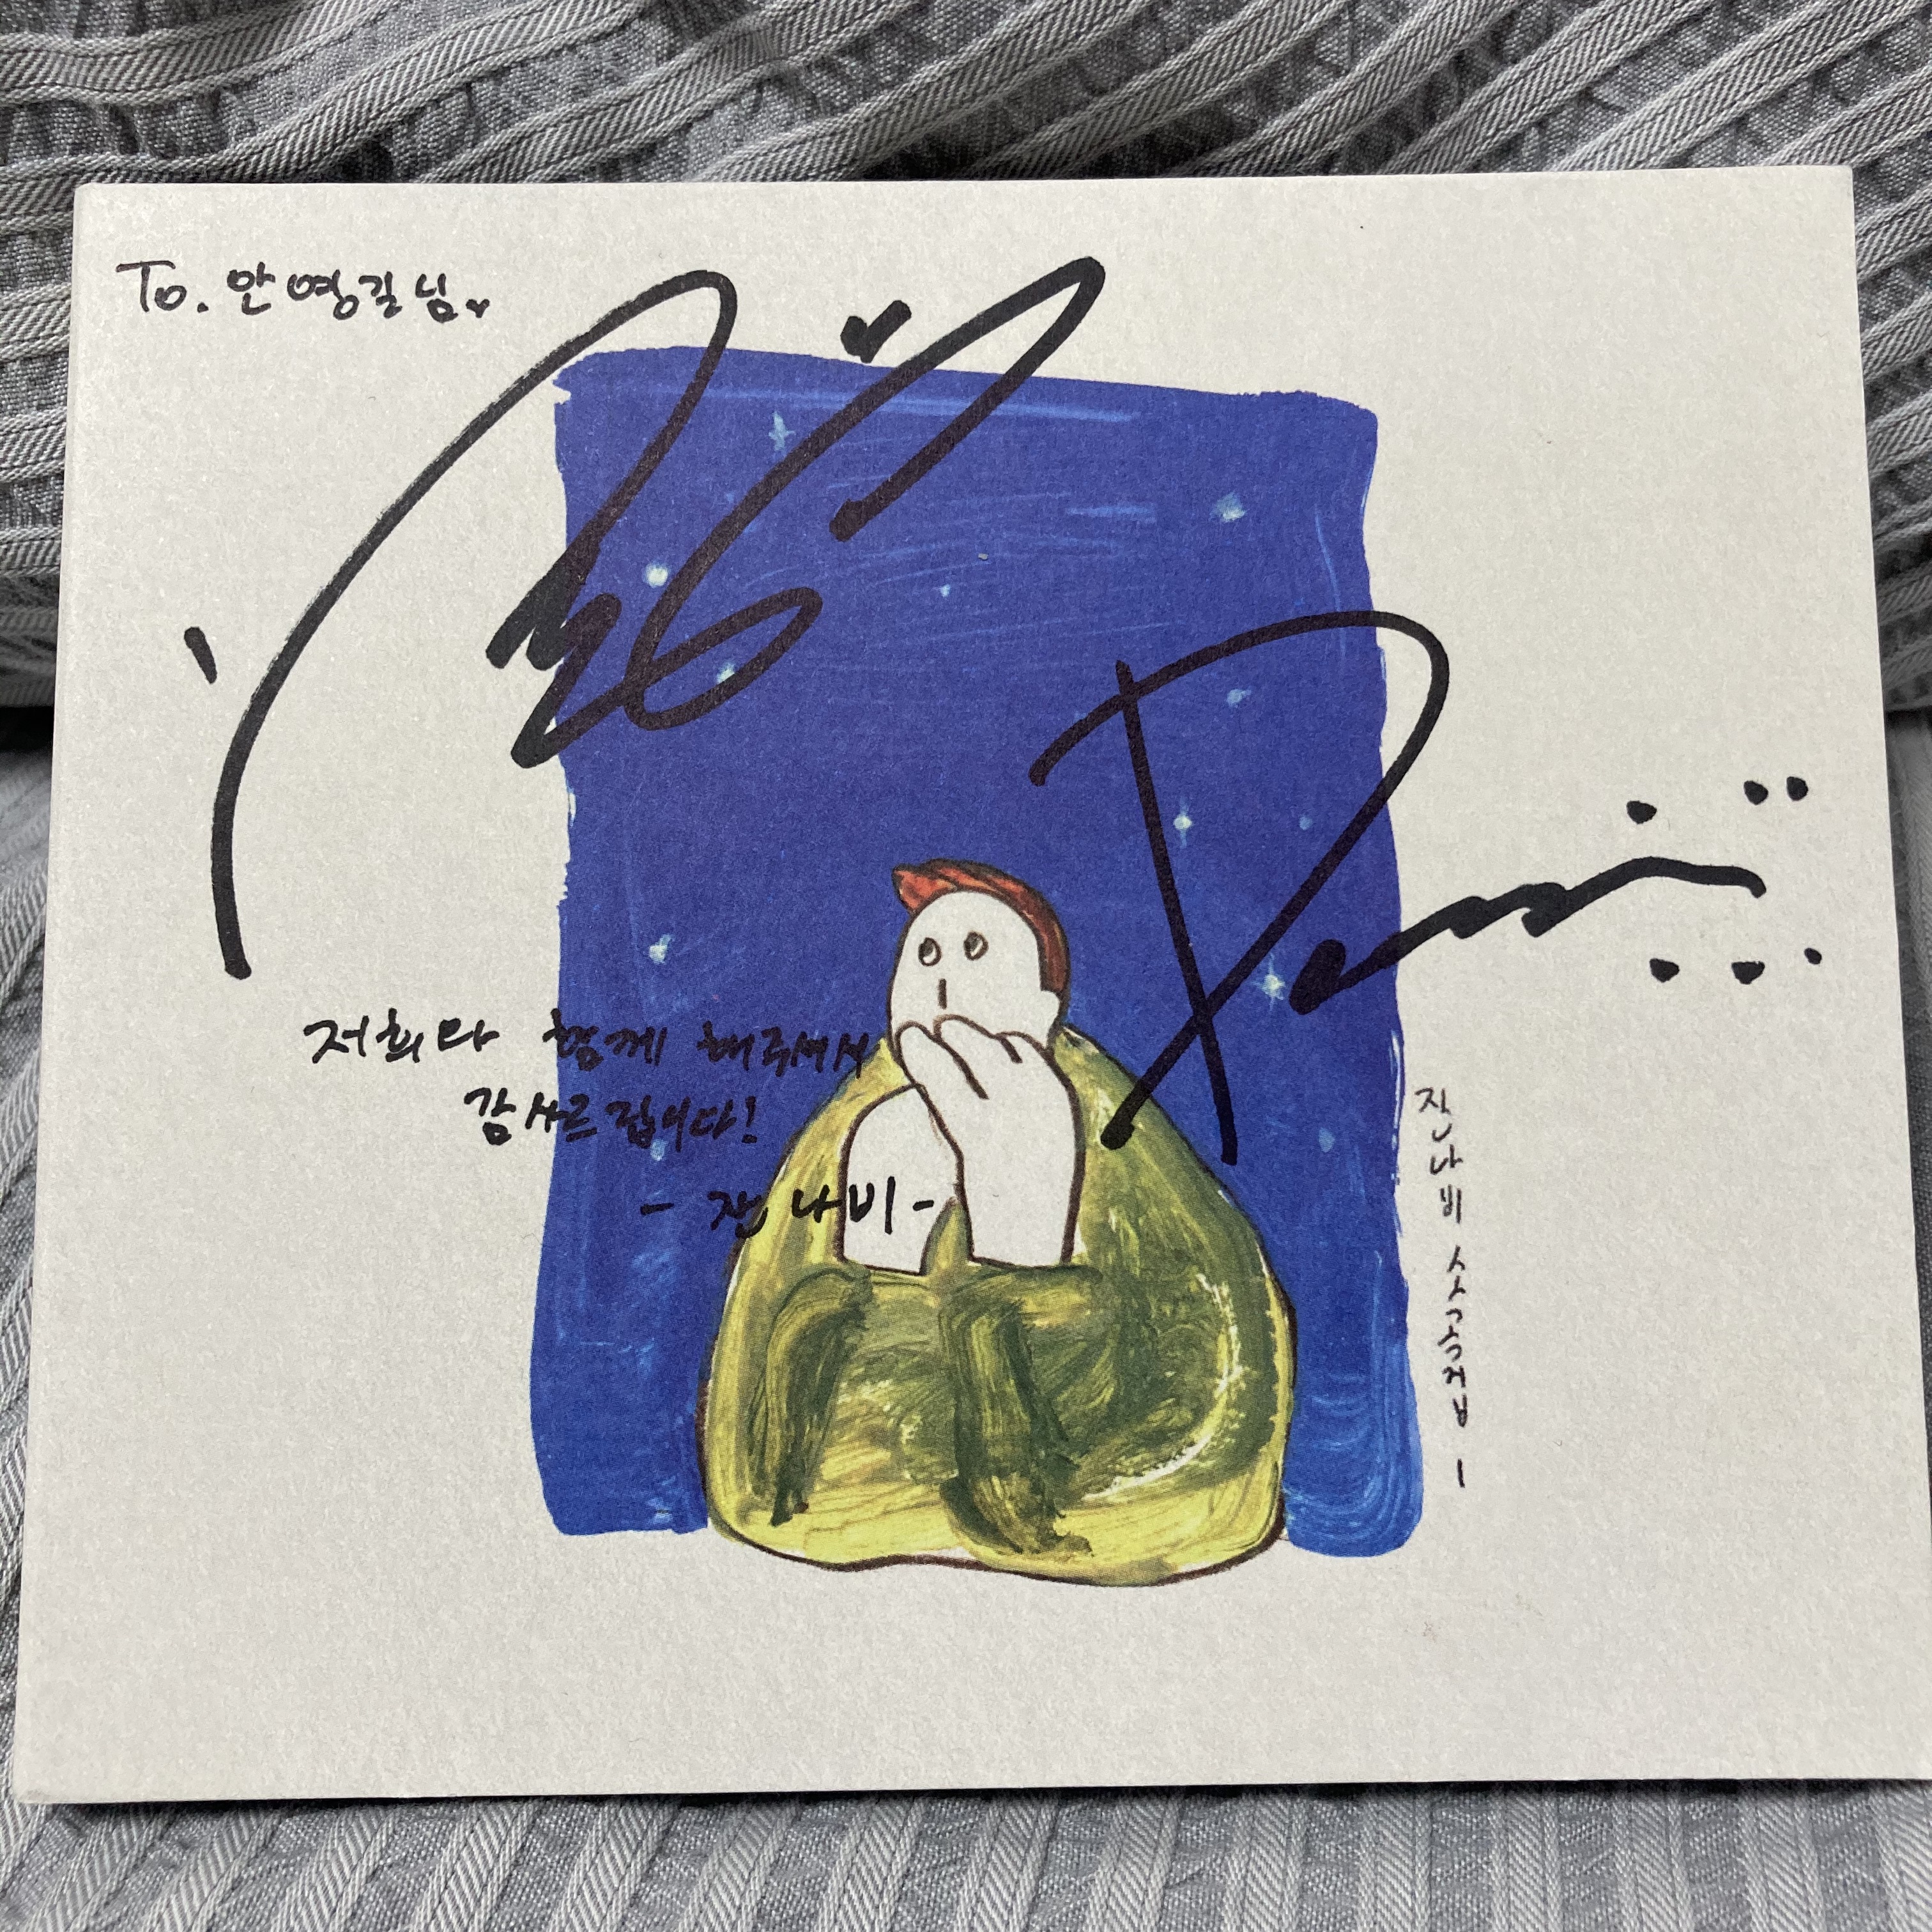 To. 안영길님
저희와 함께 해주셔서
감사드립니다!
- 잔나비 -
잔나비 소곡집 I